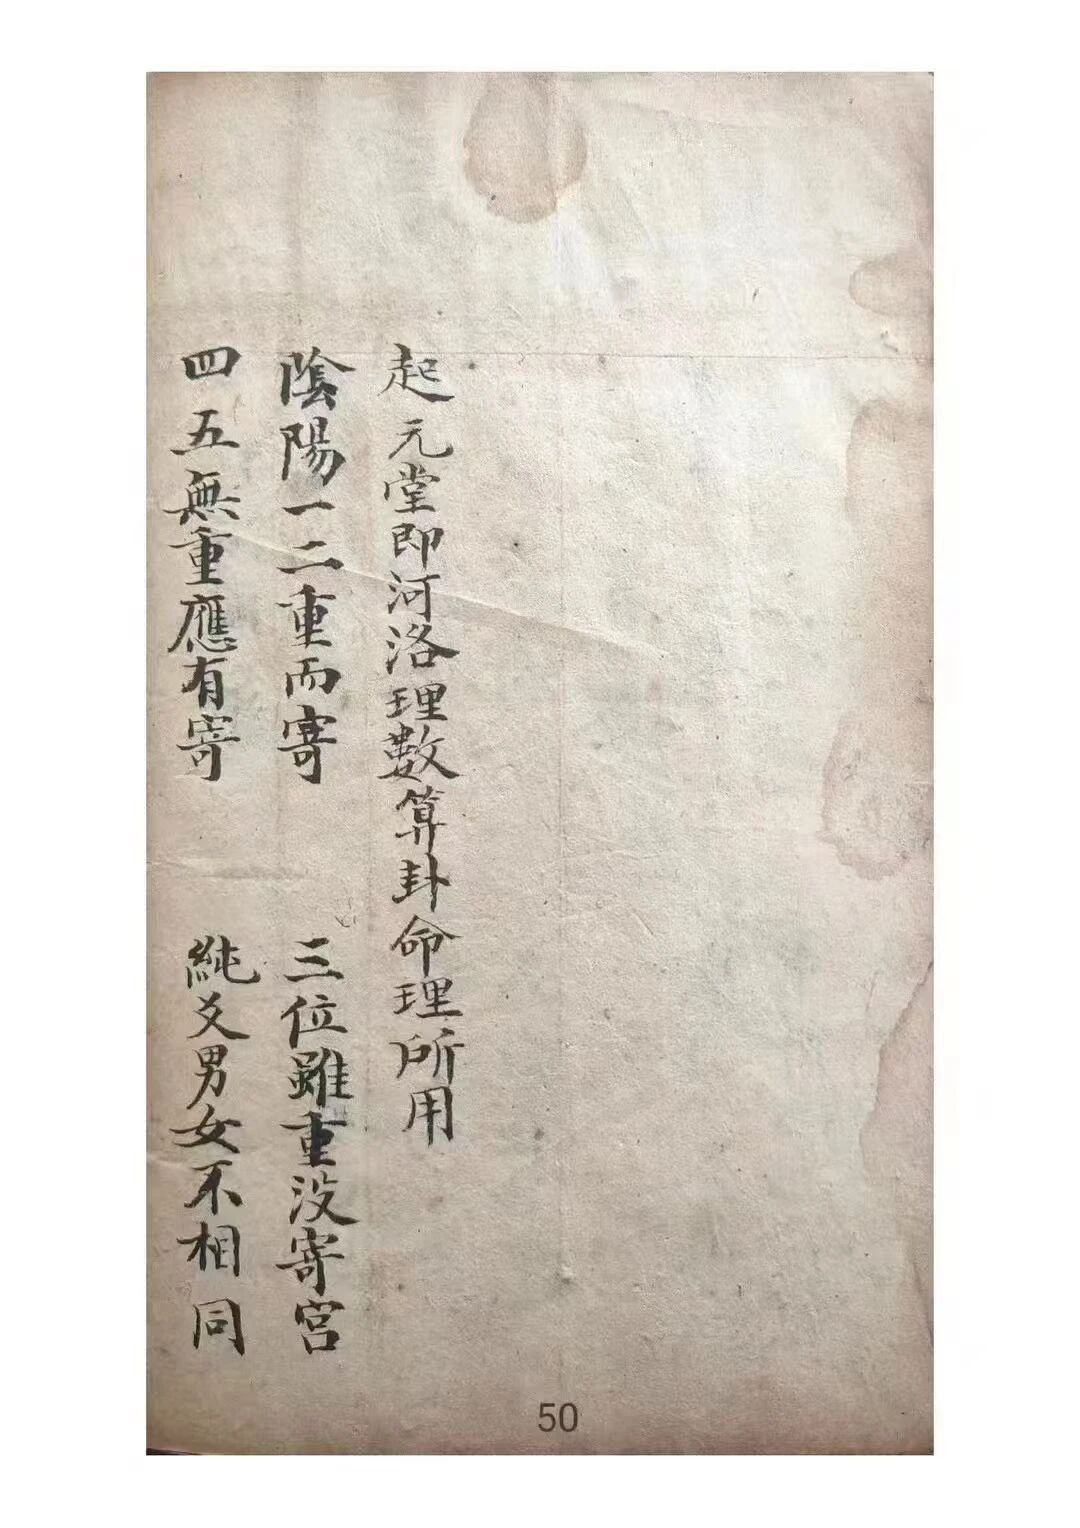 起元堂即河洛理數算卦命理所用
陰陽一二重而寄 三位雖重没寄宫
四五無重應有寄 純爻男女不相同
50